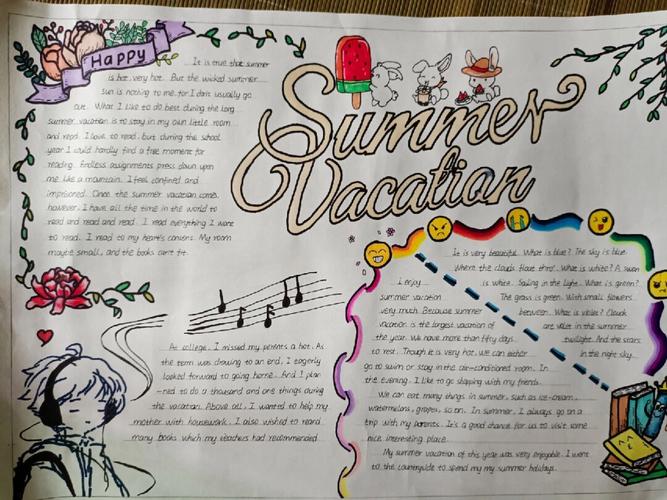 Happy
Summer
Vacation
It is true that summer
is hot, very hot. But the wicked summer
sun is nothing to me, for I don't usually go
out. What I like to do best during the long
summer vacation is to stay in my own little room
and read. I love to read, but during the school
year I could hardly find a free moment for
reading. Endless assignments press down upon
me like a mountain. I feel confined and
imprisoned. Once the summer vacation comes,
however, I have all the time in the world to
read and read and read. I read everything I want
to read. I read to my heart's content. My room
maybe small, and the books can't fit.
At college, I missed my parents a hot. As
the term was drawing to an end, I eagerly
looked forward to going home. And I plan
-ned to do a thousand and one things during
the vacation. Above all, I wanted to help my
mother with housework. I also wished to read
many books which my teachers had recommended.
It is very beautiful. What is blue? The sky is blue
Where the clouds float thro'. What is white? A swan
is white. Sailing in the light. What is green?
The grass is green. With small flowers
between. What is violet? Clouds
are violet in the summer
twilight. And the stars
in the night sky.
I enjoy
summer vacation
very much. Because summer
vacation is the largest vacation of
the year. We have more than fifty days
to rest. Though it is very hot, we can either
go to swim or stay in the air-conditioned room. In
the evening, I like to go shopping with my friends.
We can eat many things in summer, such as ice-cream,
watermelons, grapes, so on. In summer, I always go on a
trip with my parents. It's a good chance for us to visit some
nice interesting place.
My summer vacation of this year was very enjoyable. I went
to the countryside to spend my my summer holidays.